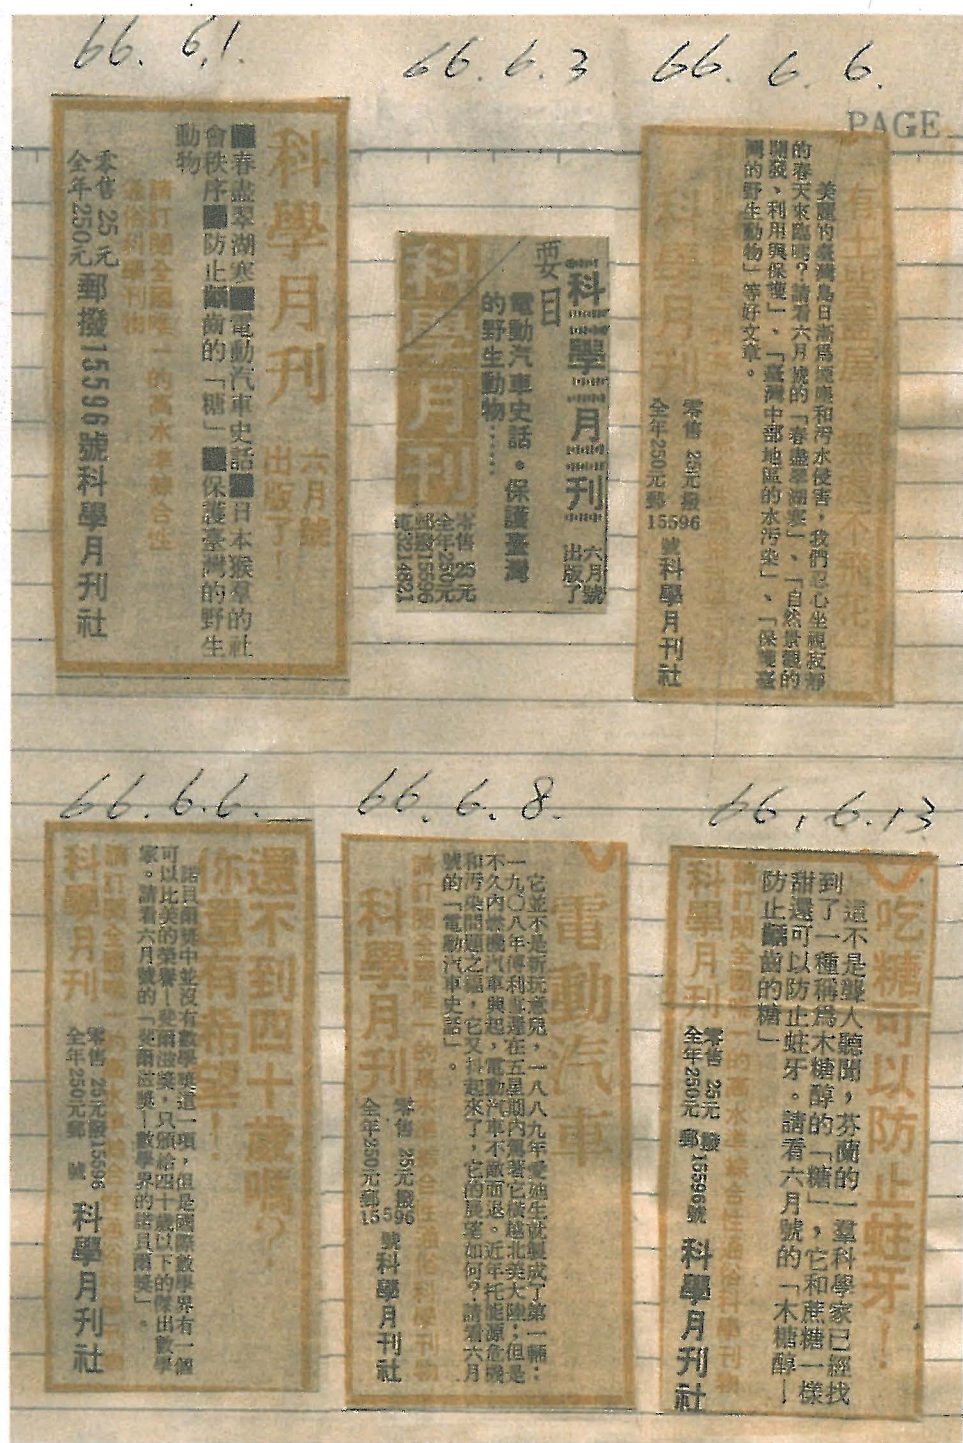 66. 6.1.
科學月刊 六月號
出版了！
■春盡翠湖寒■電動汽車史話■日本猴羣的社
會秩序■防止齲齒的「糖」■保護臺灣的野生
動物
請訂閱全國唯一的高水準綜合性
通俗科學刊物
零售 25元
全年250元
郵撥15596號科學月刊社
66. 6. 3
科學月刊
六月號
出版了
要目
電動汽車史話。保護臺灣
的野生動物……
科學月刊
零售 25元
全年250元
郵撥15596
電3214821
66. 6. 6.
PAGE
美麗的臺灣島日漸爲煙塵和汚水侵害，我們忍心坐視寂靜
的春天來臨嗎？請看六月號的「春盡翠湖寒」、「自然景觀的
開發、利用與保護」、「臺灣中部地區的水汚染」、「保護臺
灣的野生動物」等好文章。
零售 25元
全年250元
郵撥
15596
號科學月刊社
66. 6. 6.
還不到四十
諾貝爾獎中並沒有數學獎這一項，但是國際數學界有一個
可以比美的榮譽—費爾滋獎，只頒給四十歲以下的傑出數學
家。請看六月號的「費爾滋獎—數學界的諾貝爾獎」。
科學月刊
零售 25元
全年250元
郵撥15596
號
科學月刊社
66. 6. 8.
電動汽車
它並不是新玩意兒，一八八九年愛迪生就製成了第一輛；
一九〇八年傅利雪還在五星期內駕著它橫越北美大陸；但是
不久內燃機汽車興起，電動汽車不敵而退。近年托能源危機
和汚染問題之福，它又抖起來了，它的展望如何？請看六月
號的「電動汽車史話」。
科學月刊
零售 25元
全年250元
郵撥
15596
號科學月刊社
66. 6. 13
吃糖可以防止蛀牙！
這不是聳人聽聞，芬蘭的一羣科學家已經找
到了一種稱爲木糖醇的「糖」，它和蔗糖一樣
甜還可以防止蛀牙。請看六月號的「木糖醇—
防止齲齒的糖」
科學月刊
零售 25元
全年250元
郵撥
15596號
科學月刊社